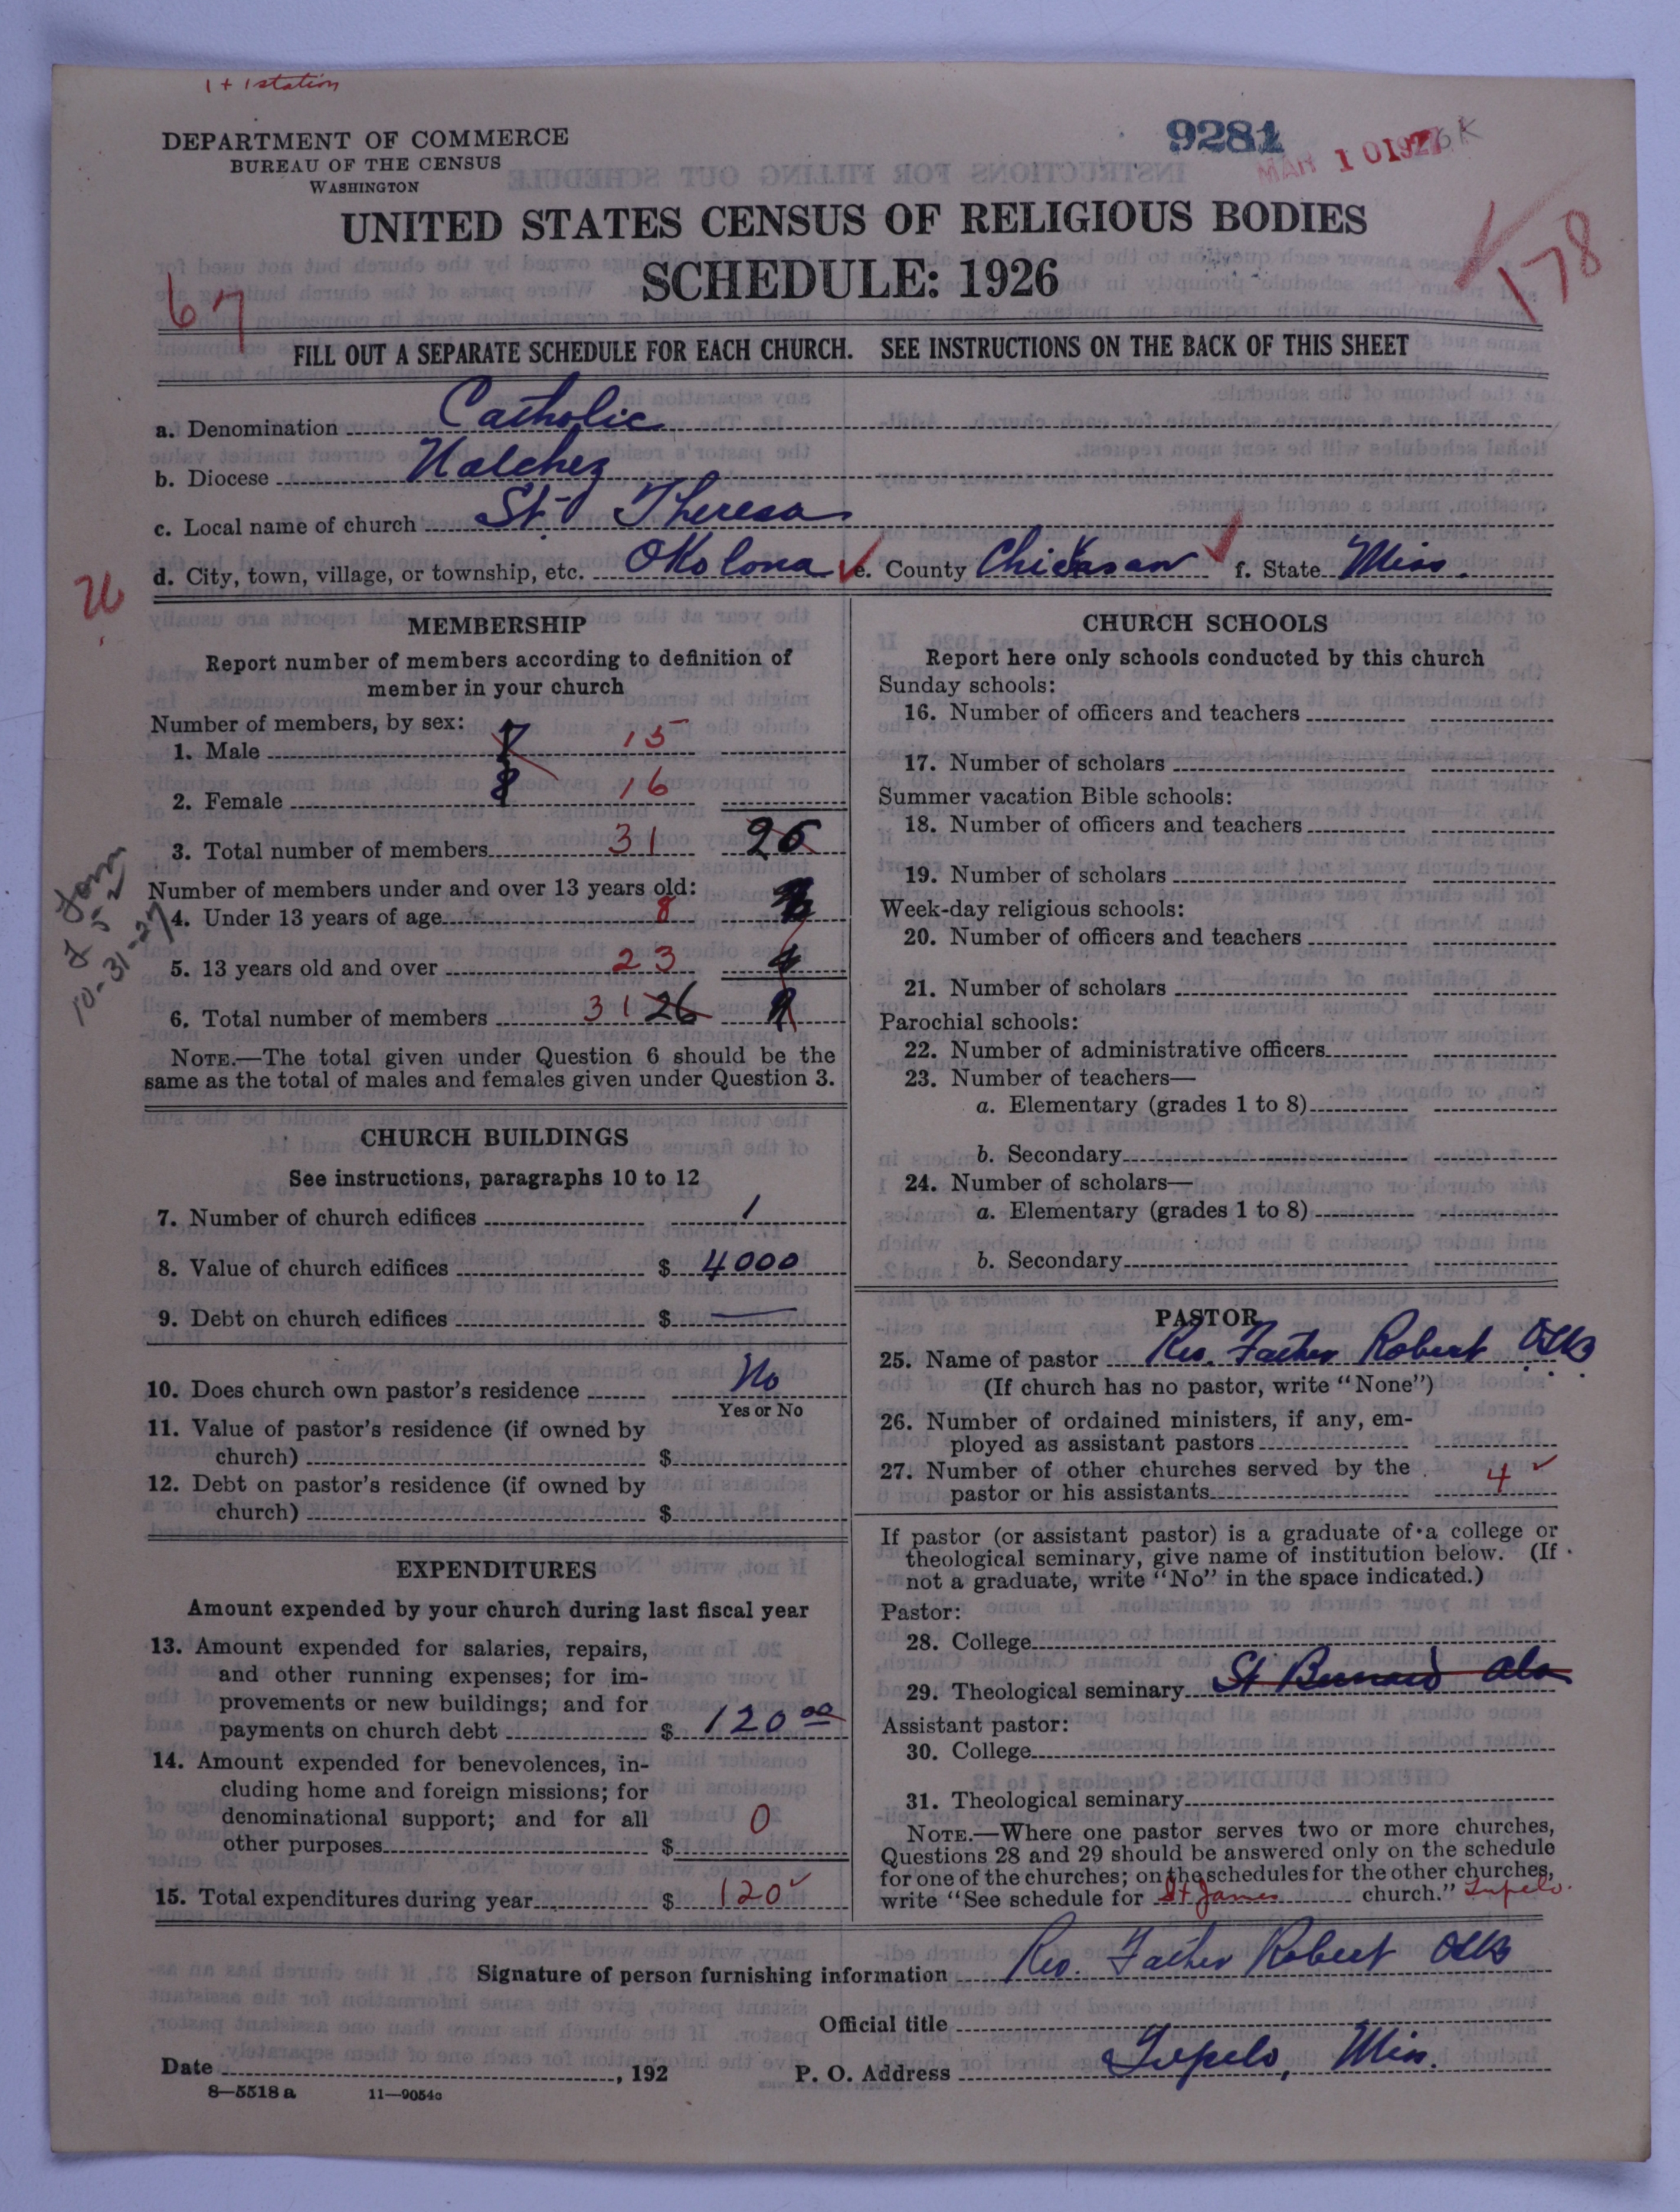 1 + 1 station
DEPARTMENT OF COMMERCE
BUREAU OF THE CENSUS
WASHINGTON
9281
MAR 10 1927
UNITED STATES CENSUS OF RELIGIOUS BODIES
SCHEDULE: 1926
67
178
FILL OUT A SEPARATE SCHEDULE FOR EACH CHURCH. SEE INSTRUCTIONS ON THE BACK OF THIS SHEET
a. Denomination Catholic
b. Diocese Natchez
c. Local name of church St. Theresa
d. City, town, village, or township, etc. Okolona e. County Chickasaw f. State Miss.
26
MEMBERSHIP
Report number of members according to definition of
member in your church
Number of members, by sex:
1. Male 7 15
2. Female 8 16
3. Total number of members 31 26
Number of members under and over 13 years old:
4. Under 13 years of age 8
5. 13 years old and over 23
6. Total number of members 31 26
10-31-27
NOTE.—The total given under Question 6 should be the
same as the total of males and females given under Question 3.
CHURCH BUILDINGS
See instructions, paragraphs 10 to 12
7. Number of church edifices 1
8. Value of church edifices $ 4000
9. Debt on church edifices $ —
10. Does church own pastor's residence No
Yes or No
11. Value of pastor's residence (if owned by
church) $
12. Debt on pastor's residence (if owned by
church) $
EXPENDITURES
Amount expended by your church during last fiscal year
13. Amount expended for salaries, repairs,
and other running expenses; for im-
provements or new buildings; and for
payments on church debt $ 120 00
14. Amount expended for benevolences, in-
cluding home and foreign missions; for
denominational support; and for all
other purposes $ 0
15. Total expenditures during year $ 120
CHURCH SCHOOLS
Report here only schools conducted by this church
Sunday schools:
16. Number of officers and teachers
17. Number of scholars
Summer vacation Bible schools:
18. Number of officers and teachers
19. Number of scholars
Week-day religious schools:
20. Number of officers and teachers
21. Number of scholars
Parochial schools:
22. Number of administrative officers
23. Number of teachers—
a. Elementary (grades 1 to 8)
b. Secondary
24. Number of scholars—
a. Elementary (grades 1 to 8)
b. Secondary
PASTOR
25. Name of pastor Rev. Father Robert OSB
(If church has no pastor, write "None")
26. Number of ordained ministers, if any, em-
ployed as assistant pastors
27. Number of other churches served by the
pastor or his assistants 4
If pastor (or assistant pastor) is a graduate of a college or
theological seminary, give name of institution below. (If
not a graduate, write "No" in the space indicated.)
Pastor:
28. College
29. Theological seminary St Bernard Ala
Assistant pastor:
30. College
31. Theological seminary
NOTE.—Where one pastor serves two or more churches,
Questions 28 and 29 should be answered only on the schedule
for one of the churches; on the schedules for the other churches,
write "See schedule for St James church." Tupelo.
Signature of person furnishing information Rev. Father Robert OSB
Official title
Date , 192 P. O. Address Tupelo, Miss.
8—5518 a 11—9054c